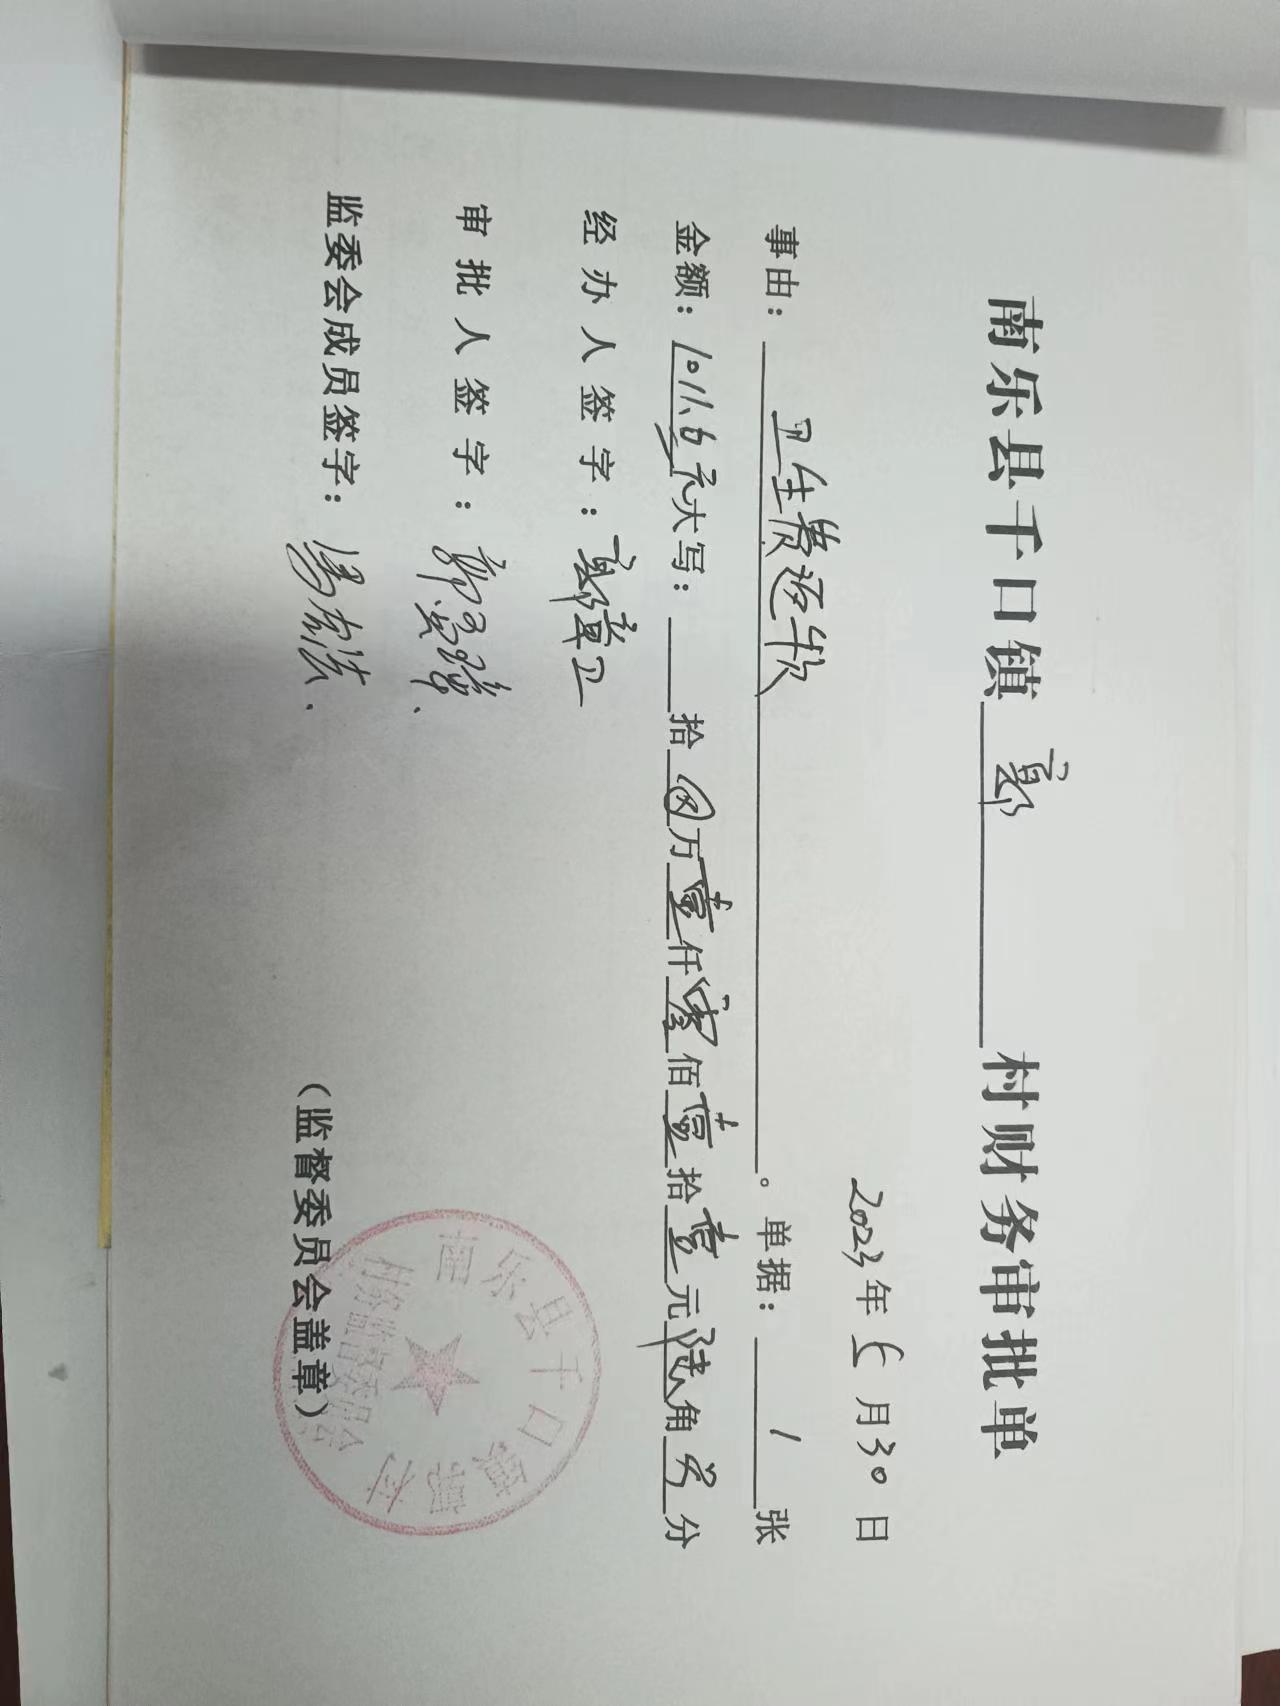 南乐县千口镇 郭 村财务审批单
2023年 5 月 30 日
事由： 卫生费返款 。单据： 1 张
金额：1011.6元大写： 拾 ⊗ 万 壹 仟 零 佰 壹 拾 壹 元 陆 角 分
经办人签字：郭章卫
审批人签字：
监委会成员签字：
（监督委员会盖章）
南乐县千口镇 村
村务监督委员会